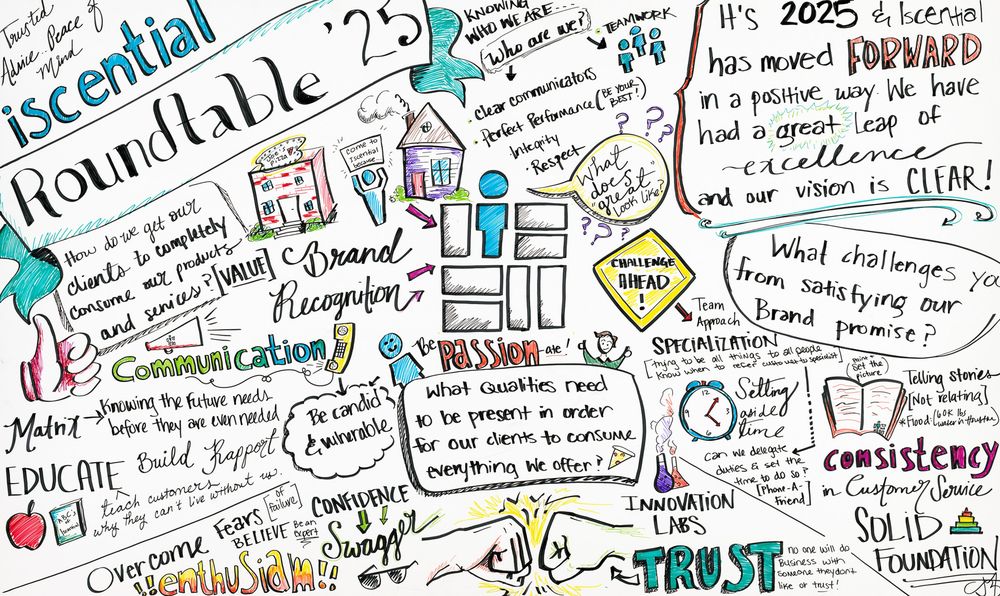 Trusted
Advice.. Peace of
Mind
iscential
Roundtable '25
KNOWING
WHO WE ARE...
Who are we?
TEAMWORK
• Clear communicators
• Perfect Performance (BE YOUR
BEST!)
Integrity
• Respect
What
does
"great"
look like?
It's 2025 & Iscential
has moved FORWARD
in a positive way. We have
had a great leap of
excellence
and our vision is CLEAR!
Joe's
Pizza
Come to
Iscential
because
How do we get our
clients to completely
consume our products
and services?
[VALUE]
Brand
Recognition
CHALLENGE
AHEAD
!
Team
Approach
What challenges you
from satisfying our
Brand promise?
Communication
Be PASSION-ate!
What Qualities need
to be present in order
for our clients to consume
everything we offer?
SPECIALIZATION
[trying to be all things to all people
Know when to refer customers to specialist]
Setting
aside
time
Can we delegate
duties & set the
time to do so?
[Phone-A-
Friend]
Paint
Set the
picture
Telling stories
[Not relating]
* Flood
Matrix → Knowing the future needs
before they are even needed
Be candid
& vulnerable
EDUCATE
Build Rapport
teach customers
why they can't live without us.
ABC's
of
Iscential
Overcome Fears [of
failure]
BELIEVE
Be an
expert
!!enthusiasm!!
CONFIDENCE
Swagger
INNOVATION
LABS
TRUST
no one will do
Business with
someone they don't
like or trust!
consistency
in Customer Service
SOLID
FOUNDATION